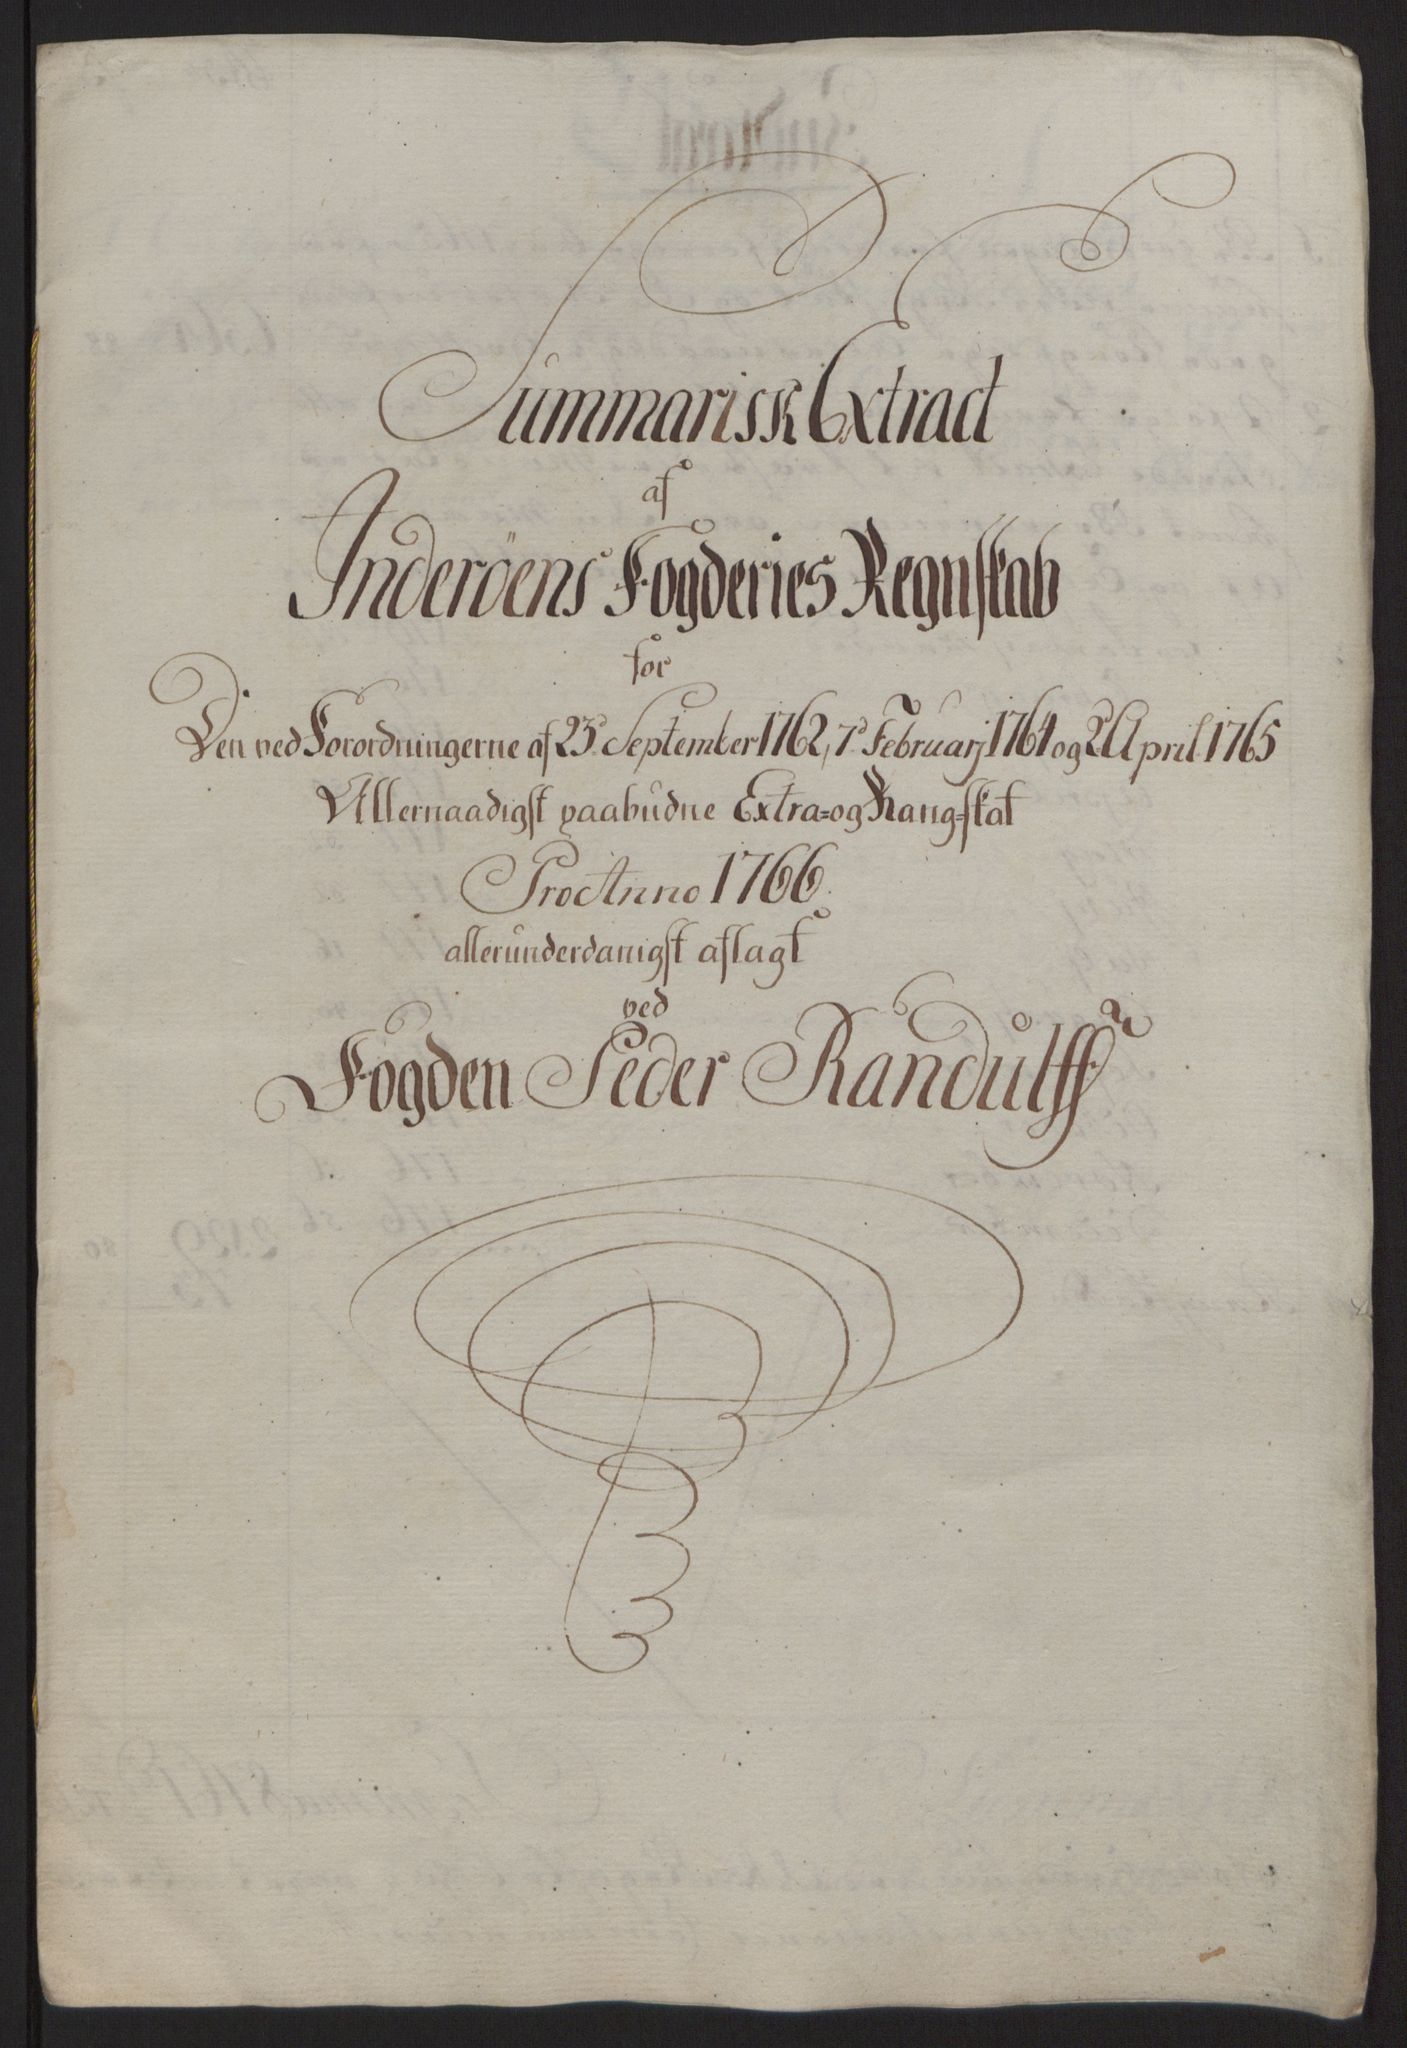 Summarisk Extract
af
Inderöens Fogderies Regnskab
for
Den ved Forordningerne af 23d September 1762, 7d Februarj 1764 og 2d April 1765
Allernaadigst paabudne Extra= og Rang=skat
Pro Anno 1766
allerunderdanigst aflagt
ved
Fogden Peder Randulff